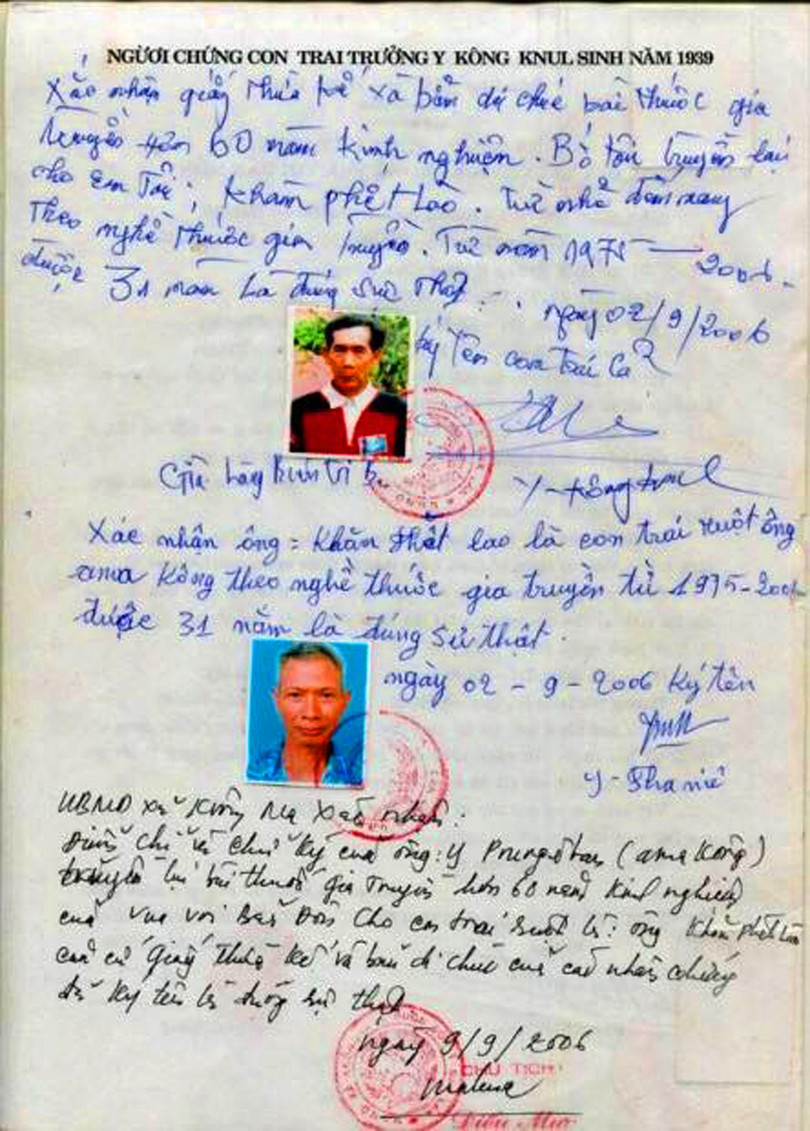 NGƯỜI CHỨNG CON TRAI TRƯỞNG Y KÔNG KNUL SINH NĂM 1939
Xác nhận giấy thừa kế và bản di chúc bài thuốc gia
truyền hơn 60 năm kinh nghiệm. Bố tôi truyền lại
cho em Tôi; Khăm phết Lào. Từ nhỏ đến nay
Theo nghề thuốc gia truyền. Từ năm 1975 — 2006.
được 31 năm Là đúng sự thật.
ngày 02/9/2006
ký Tên con Trai Cả
Y-Kông knul
Già làng buôn
Xác nhận ông: Khăm phết lao là con trai ruột ông
ama Kông theo nghề thuốc gia truyền từ 1975-2006
được 31 năm là đúng sử thật.
ngày 02-9-2006 Ký tên
UBND xã Krông Na Xác nhận:
chữ ký của ông: Y Prung (ama Kông)
truyền lại bài thuốc gia truyền hơn 60 năm kinh nghiệm
của vua voi Bản Đôn cho con trai ruột là: ông Khăm phết Lào
căn cứ giấy thừa kế và bản di chúc của các nhân chứng
đã ký tên là đúng sự thật
ngày 9/9/2006
CHỦ TỊCH